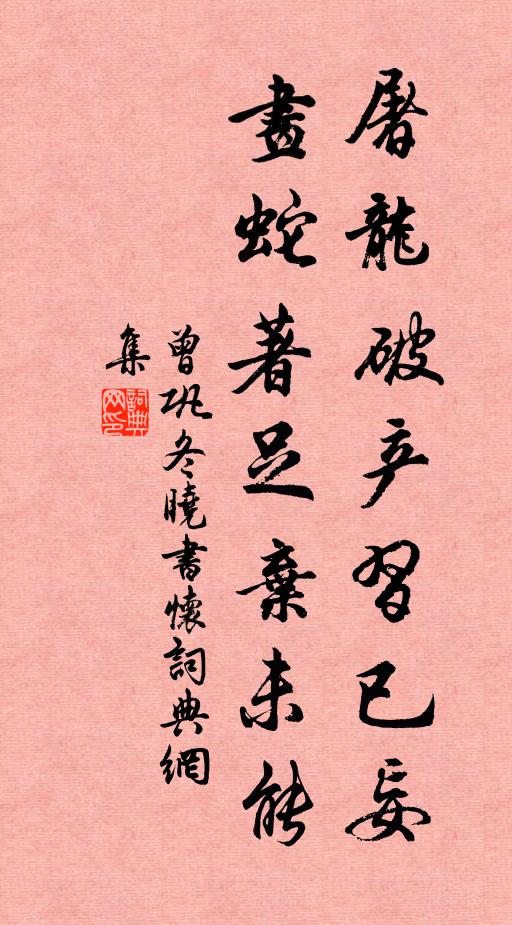 屠龍破产習已妄
畫蛇著足棄未能
曾巩冬曉書懷詞典網
集
詞典网印